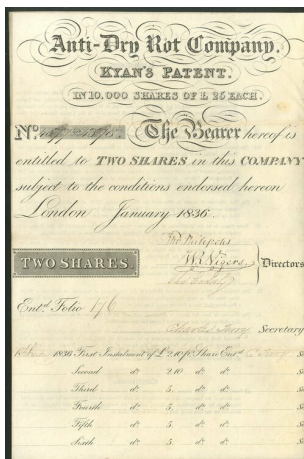 Anti-Dry Rot Company.
KYAN'S PATENT.
IN 10,000 SHARES OF £ 25 EACH.
No. The Bearer hereof is
entitled to TWO SHARES in this COMPANY
subject to the conditions endorsed hereon
London January 1836.
TWO SHARES
W.R. Vigors
Directors
Entd. Folio 176
Charles Terry Secretary
1836 First Instalment of £2.10 p Share Entd. C Terry
Second do. 2.10 do. do.
Third do. 5. do. do.
Fourth do. 5. do. do.
Fifth do. 5. do. do.
Sixth do. 5. do. do.